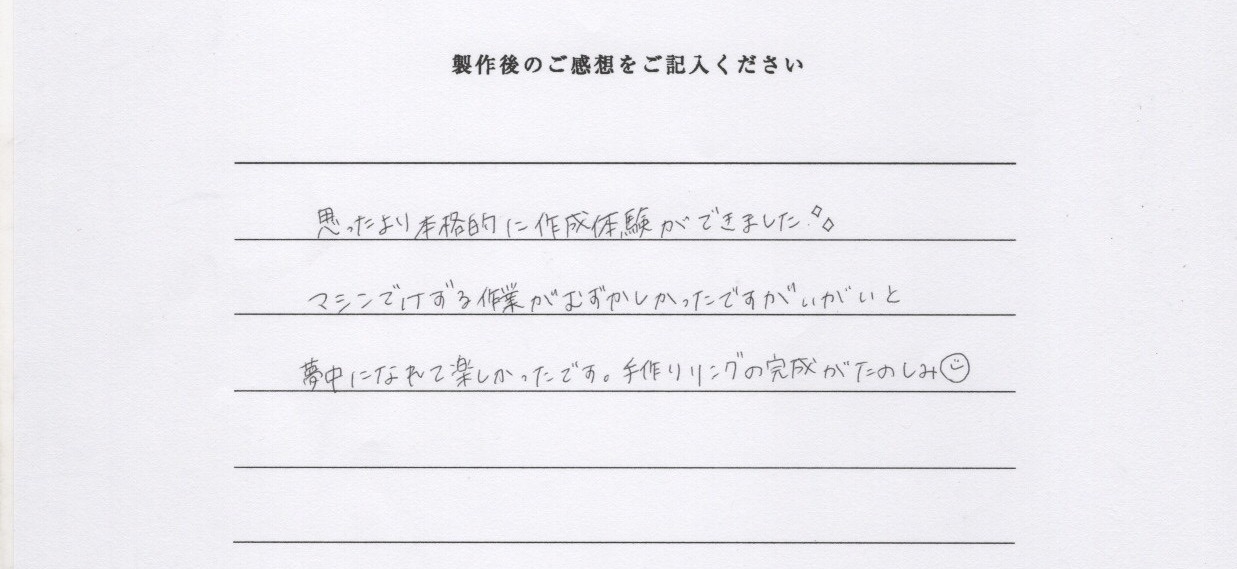 製作後のご感想をご記入ください
思ったより本格的に作成体験ができました。
マシンでけずる作業がむずかしかったですがいがいと
夢中になれて楽しかったです。手作りリングの完成がたのしみ☺